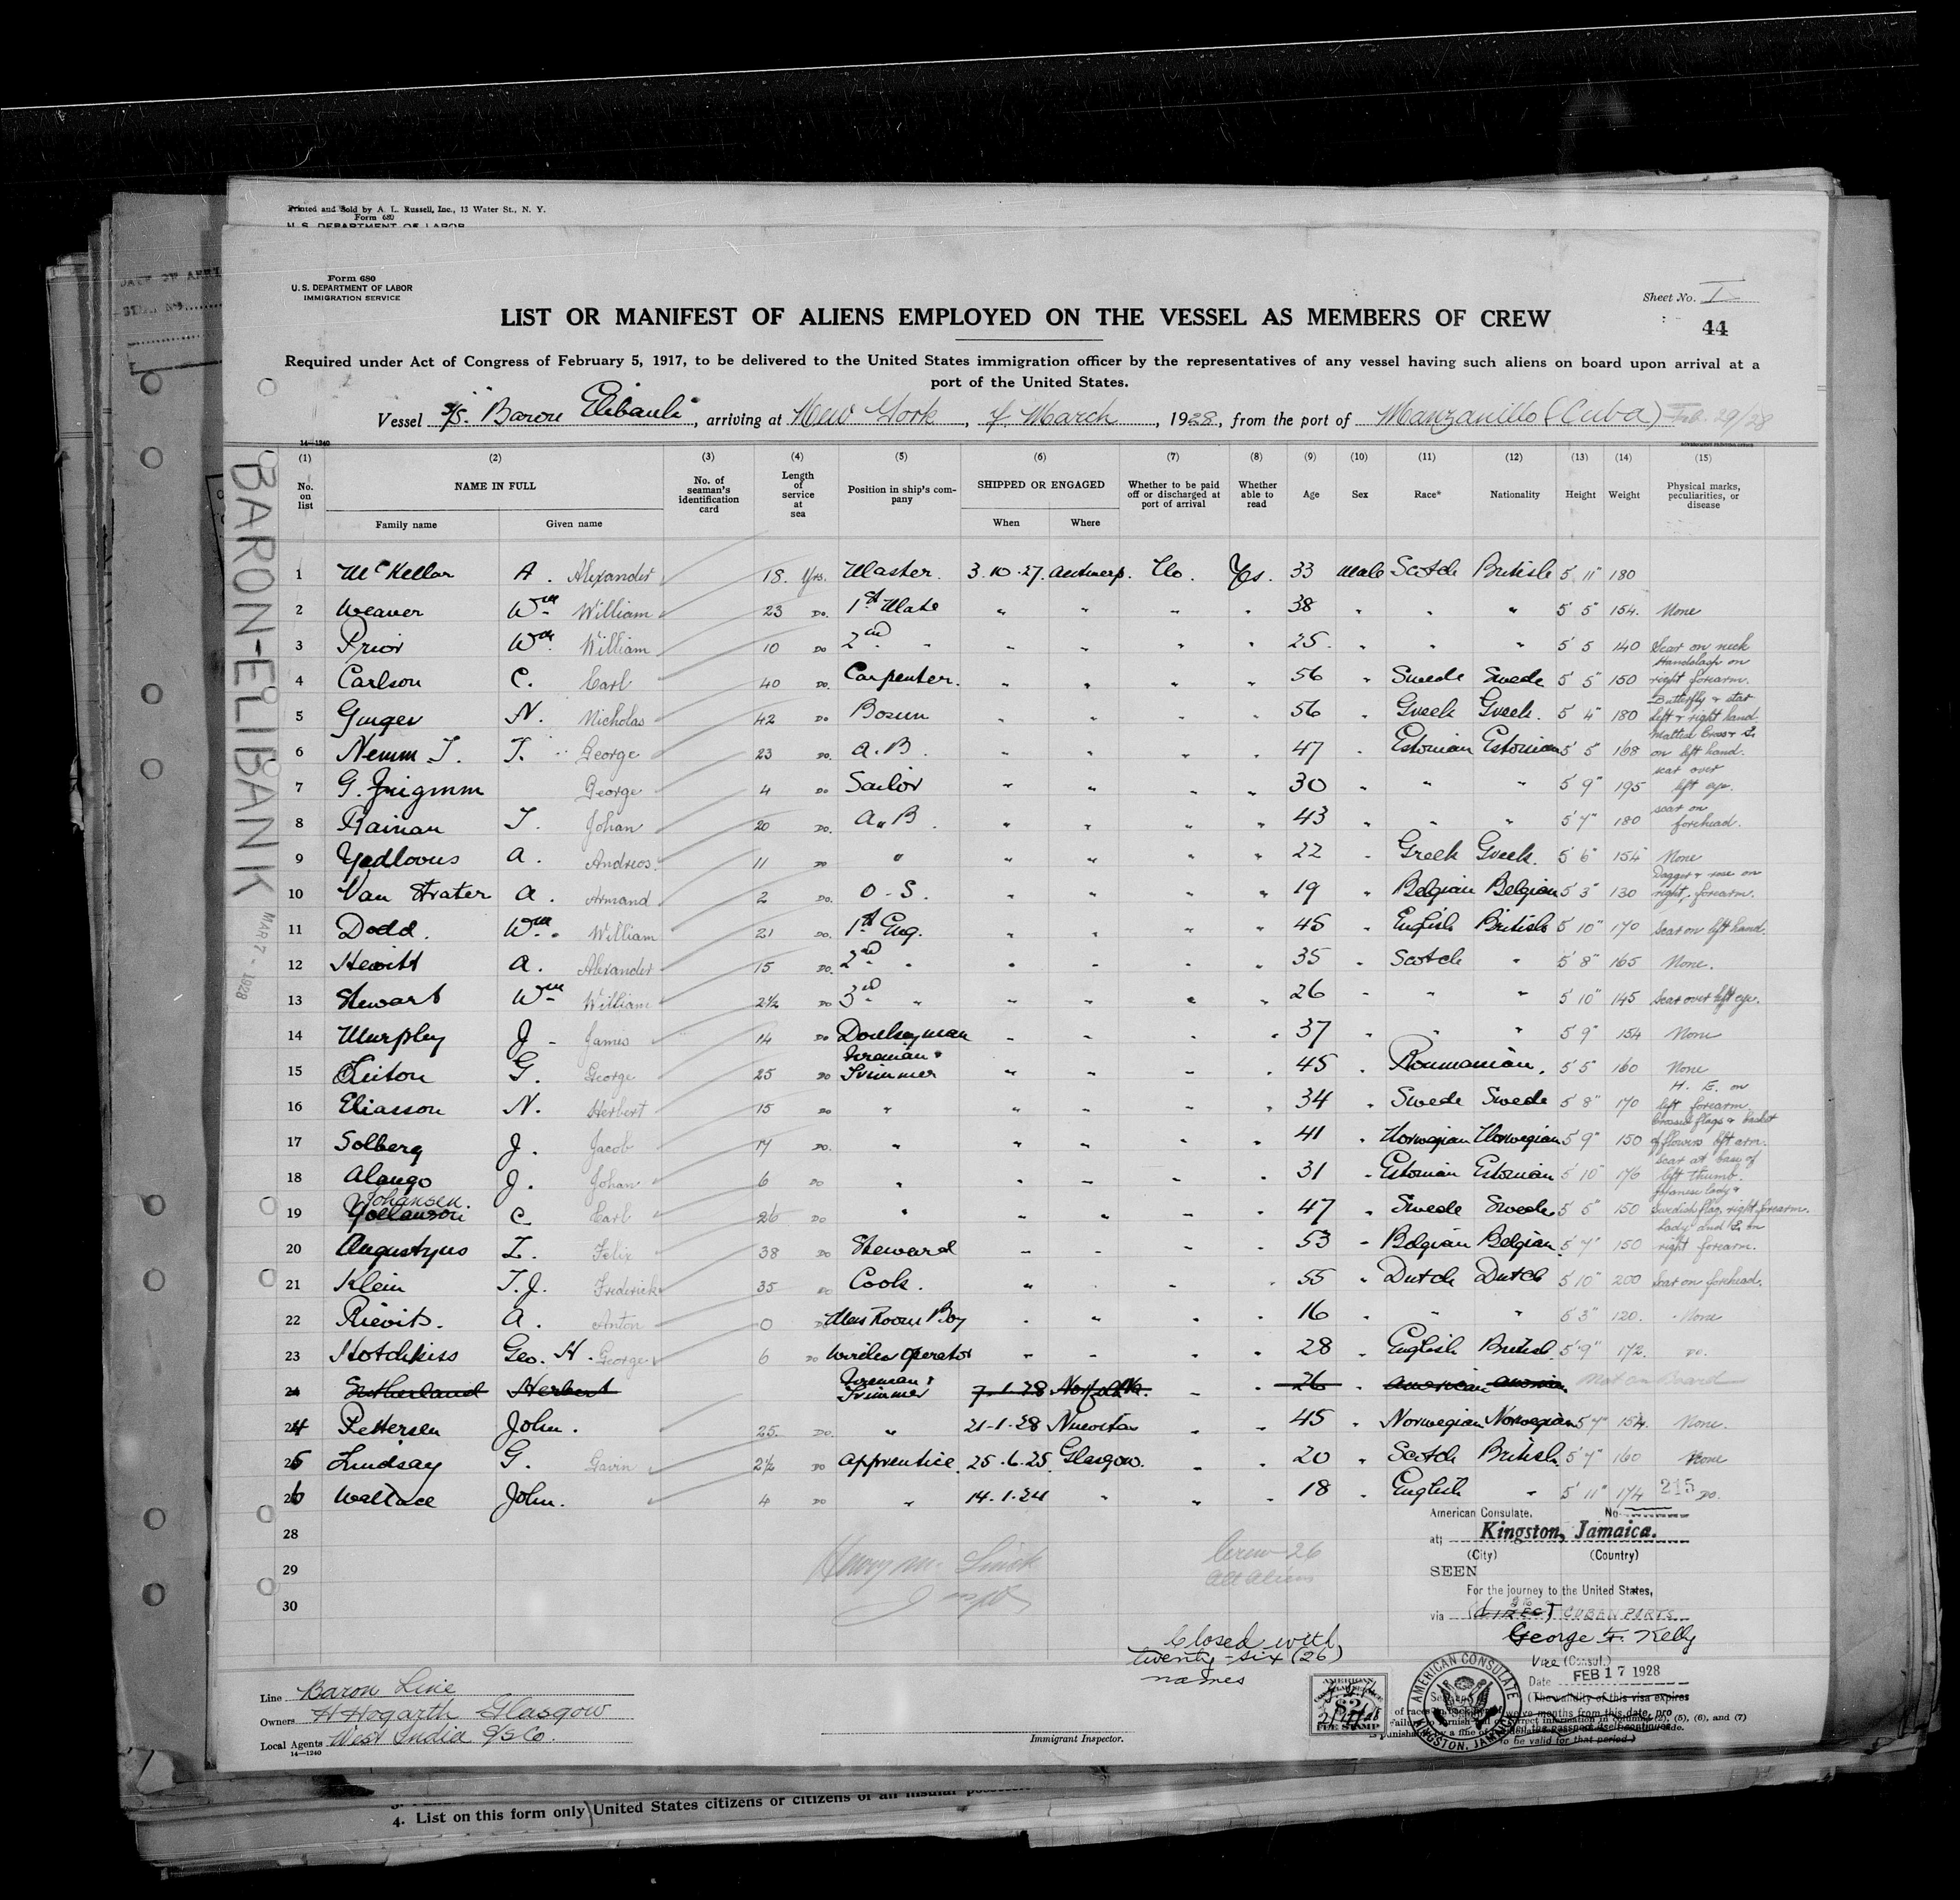 Printed and Sold by A. L. Russell, Inc., 13 Water St., N. Y.
Form 680
U. S. DEPARTMENT OF LABOR
Form 680
U. S. DEPARTMENT OF LABOR
IMMIGRATION SERVICE
Sheet No. I
44
LIST OR MANIFEST OF ALIENS EMPLOYED ON THE VESSEL AS MEMBERS OF CREW
Required under Act of Congress of February 5, 1917, to be delivered to the United States immigration officer by the representatives of any vessel having such aliens on board upon arrival at a
port of the United States.
Vessel S/S. "Baron Elibank", arriving at New York, 7 March, 1928, from the port of Manzanillo (Cuba) Feb. 29/28
14—1240
BARON-ELIBANK
MAR 7 - 1928
(1) (2) (3) (4) (5) (6) (7) (8) (9) (10) (11) (12) (13) (14) (15)
No. on list NAME IN FULL Family name Given name No. of seaman's identification card Length of service at sea Position in ship's company SHIPPED OR ENGAGED When Where Whether to be paid off or discharged at port of arrival Whether able to read Age Sex Race* Nationality Height Weight Physical marks, peculiarities, or disease
1 McKellar A. Alexander 18 Yrs. Master. 3.10.27. Antwerp. No. Yes. 33 Male Scotch British 5' 11" 180
2 Weaver Wm William 23 Do. 1st Mate " " " " 38 " " " 5' 5" 154. None
3 Prior Wm William 10 Do 2nd " " " " " 25. " " " 5' 5 140 Scar on neck
4 Carlson C. Carl 40 Do. Carpenter. " " " " 56 " Swede Swede 5' 5" 150 Handclasp on right forearm.
5 Ginger N. Nicholas 42 Do Bosun " " " " 56 " Greek Greek. 5' 4" 180 Butterfly & star left & right hand.
6 Nemm J. J. George 23 Do. A.B. " " " " 47 " Estonian Estonian 5' 5" 168 Maltese Cross & on left hand.
7 G. George 4 Do Sailor " " " " 30 " " " 5' 9" 195 scar over left eye.
8 Rainan J. Johan 20 Do. A.B. " " " " 43 " " " 5' 7" 180 scar on forehead.
9 Yedlovus A. Andreos 11 Do " " " " " 22 " Greek Greek. 5' 6" 154 None
10 Van Strater A. Armand 2 Do. O.S. " " " " 19 " Belgian Belgian 5' 3" 130 Dagger & rose on right forearm.
11 Dodd. Wm. William 21 Do. 1st Eng. " " " " 45 " English British 5' 10" 170 Scar on left hand.
12 Hewitt A. Alexander 15 Do. 2nd " " " " " 35 " Scotch " 5' 8" 165 None.
13 Stewart Wm William 2½ Do 3rd " " " " " 26 " " " 5' 10" 145 Scar over left eye.
14 Murphy J. James 14 Do Donkeyman " " " " 37 " " " 5' 9" 154 None
15 G. George 25 Do Fireman & Trimmer " " " " 45 " Roumanian. 5' 5" 160 None
16 Eliasson N. Herbert 15 Do " " " " " 34 " Swede Swede 5' 8" 170 H. E. on left forearm
17 Solberg J. Jacob 17 Do. " " " " " 41 " Norwegian Norwegian 5' 9" 150 Crossed flags & basket of flowers left arm.
18 Alango J. Johan 6 Do " " " " " 31 " Estonian Estonian 5' 10" 176 scar at base of left thumb.
19 Johansen. C. Carl 26 Do " " " " " 47 " Swede Swede. 5' 5" 150 Japanese lady & Swedish flag, right forearm.
20 Augustyns F. Felix 38 Do Steward " " " " 53 " Belgian Belgian 5' 7" 150 Lady and on right forearm.
21 Klein F.J. Frederick 35 Do Cook. " " " " 55 " Dutch Dutch 5' 10" 200 Scar on forehead.
22 Rievits. A. Anton 0 Do Mess Room Boy " " " " 16 " " " 5' 3" 120. None
23 Hotchkiss Geo. H. George 6 Do Wireless Operator " " " " 28 " English British. 5' 9" 172. Do.
24 Sutherland Herbert Fireman & Trimmer 7.1.28 Norfolk Va. " " 26 " American American Not on Board
24 Pettersen John. 25. Do. " 21-1-28 Nuevitas " " 45 " Norwegian Norwegian 5' 7" 154. None.
25 Lindsay G. Gavin 2½ Do Apprentice. 25.6.25. Glasgow. " " 20 " Scotch British. 5' 7" 160 None
26 Wallace John. 4 Do " 14.1.24 " " " 18 " English " 5' 11" 174 Do.
28
29
30
Crew 26
All Aliens
Closed with
twenty-six (26)
names
American Consulate. No. 215
at; Kingston, Jamaica.
(City) (Country)
SEEN
For the journey to the United States,
via DIRECT CUBAN PORTS
George F. Kelly
Vice (Consul.)
Date FEB 17 1928
(The validity of this visa expires
twelve months from this date, pro
to be valid for that period.)
AMERICAN CONSULATE
KINGSTON, JAMAICA
AMERICAN
CONSULAR SERVICE
$2
FEE STAMP
Line Baron Line
Owners H Hogarth Glasgow
Local Agents West India S/S Co.
14—1240
Immigrant Inspector.
4. List on this form only United States citizens or citizens of an insular